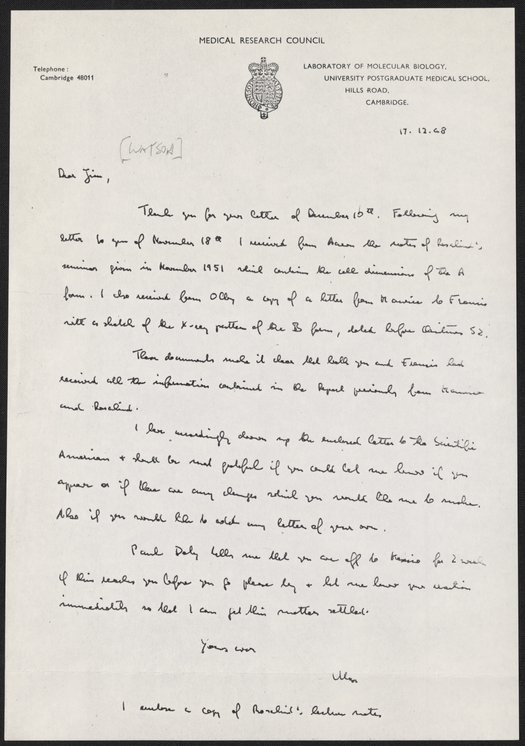 MEDICAL RESEARCH COUNCIL
Telephone:
Cambridge 48011
LABORATORY OF MOLECULAR BIOLOGY,
UNIVERSITY POSTGRADUATE MEDICAL SCHOOL,
HILLS ROAD,
CAMBRIDGE.
17. 12. 68
[WATSON]
Dear Jim,
Thank you for your letter of December 10th. Following my
letter to you of November 18th I received from Aaron the notes of Rosalind's
seminar given in November 1951 which contain the cell dimensions of the A
form. I also received from Olby a copy of a letter from Maurice to Francis
with a sketch of the X-ray pattern of the B form, dated before Christmas 52.
These documents make it clear that both you and Francis had
received all the information contained in the Report previously from Maurice
and Rosalind.
I have accordingly drawn up the enclosed letter to the Scientific
American + shall be most grateful if you could let me know if you
approve or if there are any changes which you would like me to make.
Also if you would like to add any letter of your own.
Paul Doty tells me that you are off to Mexico for 2 weeks
if this reaches you before you go please try + let me know your reaction
immediately so that I can get this matter settled.
Yours ever
Max
I enclose a copy of Rosalind's lecture notes